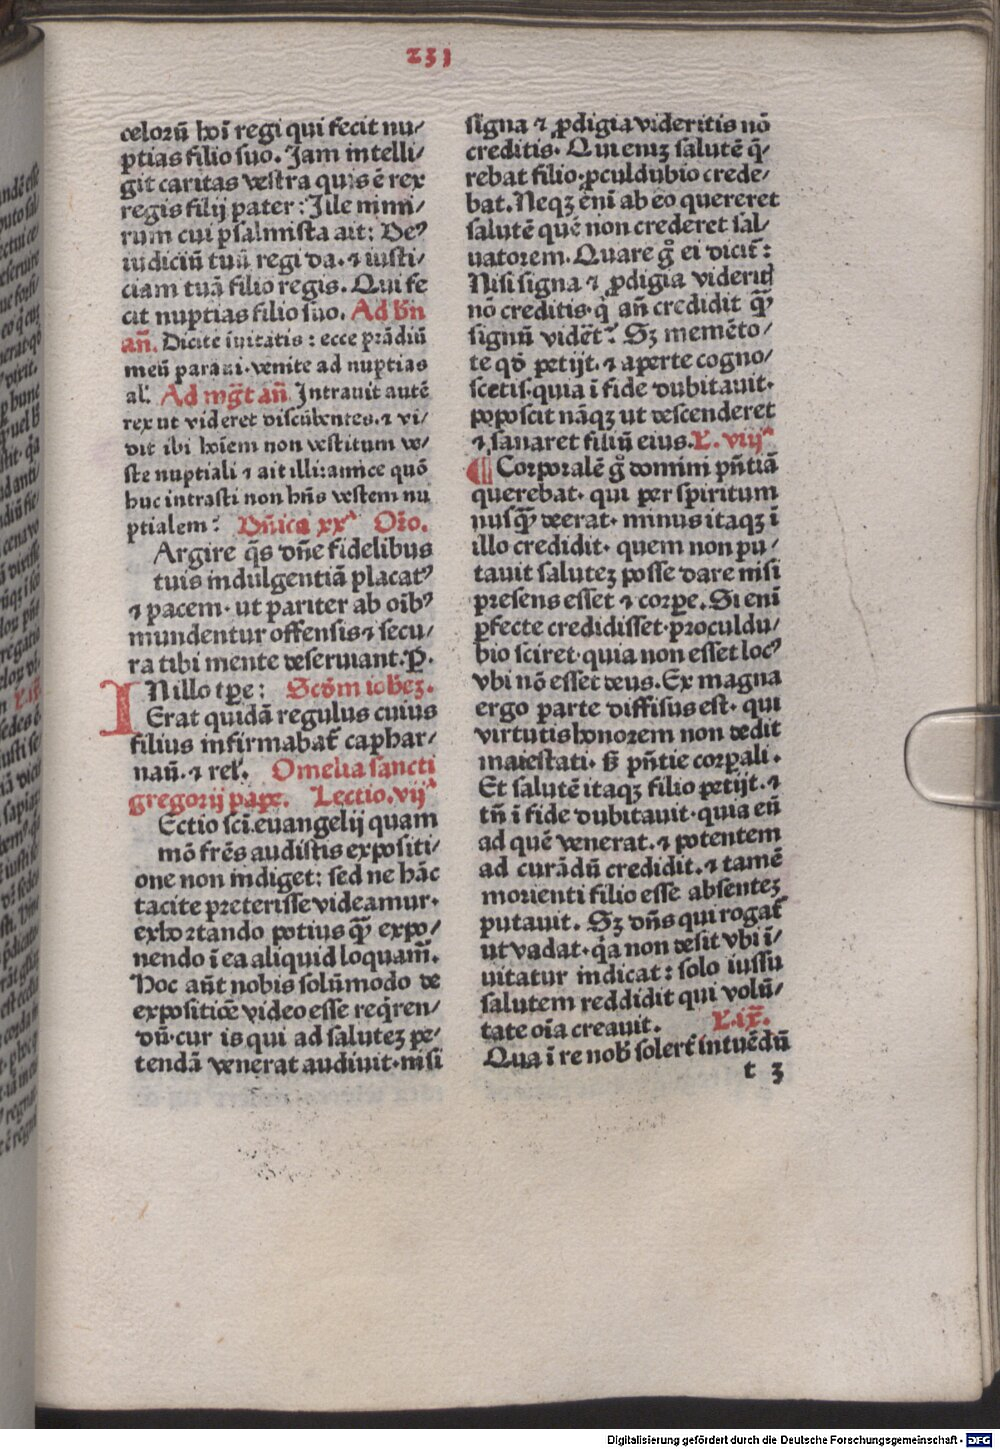 231
celorū hoī regi qui fecit nu/
ptias filio suo. Jam intelli/
git caritas vestra quis ē rex
regis filij pater: Jlle nimi/
rum cui psalmista ait: Deꝰ
iudiciū tuū regi da. ⁊ iusti/
ciam tuā filio regis. Qui fe
cit nuptias filio suo. Ad bn̄
an̄. Dicite inuitatis: ecce prādiū
meū paraui. venite ad nuptias
al'. Ad mg̅t an̄. Intrauit autē
rex ut videret discūbentes. ⁊ vi/
dit ibi hoīem non vestitum ve/
ste nuptiali ⁊ ait illi: amice quō
huc intrasti non hn̄s vestem nu
ptialem? Dn̄ica xxᵃ Or̄o.
Argire q̄s dn̄e fidelibus
tuis indulgentiā placatꝰ
⁊ pacem. ut pariter ab oībꝰ
mundentur offensis ⁊ secu/
ra tibi mente deseruiant. P.
IN illo tp̄e: Scd̄m iohēz.
Erat quidā regulus cuius
filius infirmabat̄ caphar/
nau̅. ⁊ rel'. Omelia sancti
gregorij pape. Lectio. vijᵃ
Ectio sc̄i euangelij quam
mō fr̄es audistis expositi/
one non indiget: sed ne hāc
tacite preterisse videamur.
exhortando potius qꝫ̄ expo/
nendo ī ea aliquid loquam̄.
Hoc aūt nobis solūmodo de
expositiōe video esse req̄ren/
dū. cur is qui ad salutez pe/
tendā venerat audiuit. nisi
signa ⁊ ꝓdigia videritis nō
creditis. Qui enīz salutē q̄/
rebat filio. ꝓculdubio crede/
bat. Neqꝫ enī ab eo quereret
salutē quē non crederet sal/
uatorem. Quare g̊ ei dicit̄:
Nisi signa ⁊ ꝓdigia viderit
nō creditis. q̇ an̄ credidit qꝫ̄
signū vidēt? Sꝫ memēto/
te qd̄ petijt. ⁊ aperte cogno/
scetis. quia ī fide dubitauit.
poposcit nāqꝫ ut descenderet
⁊ sanaret filiū eius. L. viijᵃ
¶ Corporalē g̊ domini pn̄tiā
querebat. qui per spiritum
nusqꝫ̄ deerat. minus itaqꝫ ī
illo credidit. quem non pu/
tauit salutez posse dare nisi
presens esset ⁊ corꝑe. Si enī
ꝑfecte credidisset. proculdu/
bio sciret. quia non esset locꝰ
vbi nō esset deus. Ex magna
ergo parte diffisus est. qui
virtutis honorem non dedit
maiestati. ß pn̄tie corꝑali.
Et salutē itaqꝫ filio petijt. ⁊
tn̄ ī fide dubitauit. quia eū
ad quē venerat. ⁊ potentem
ad curādū credidit. ⁊ tamē
morienti filio esse absentez
putauit. Sꝫ dn̄s qui rogat̄
ut vadat. q̇a non desit vbi ī/
uitatur indicat: solo iussu
salutem reddidit qui volū/
tate oīa creauit. L. ix̄.
Qua ī re nob̄ solert̄ intuēdū
t 3
Digitalisierung gefördert durch die Deutsche Forschungsgemeinschaft - DFG